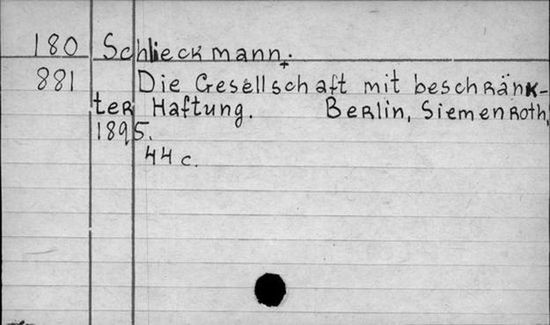 180 Schlieckmann.
881 Die Gesellschaft mit beschränk-
ter Haftung. Berlin, Siemenroth,
1895.
44 c.